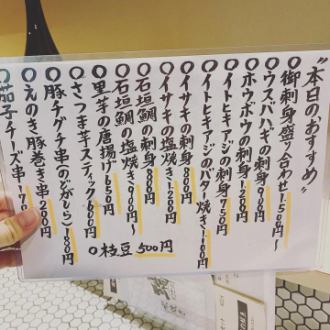 "本日のおすすめ"
○御刺身盛り合わせ1.150円~
○ウスバハギの刺身900円
○ホウボウの刺身1.200円
○イトヒキアジの刺身750円
○イトヒキアジのバター焼き1100円
○イサキの刺身800円
○イサキの塩焼き1.250円
○石垣鯛の刺身850円
○石垣鯛の塩焼き900円~
○里芋の唐揚げ650円
○さつま芋スティック600円
○豚チグチ串(のどがしら)180円
○えのき豚巻き串200円
○茄子チーズ串170
○枝豆500円